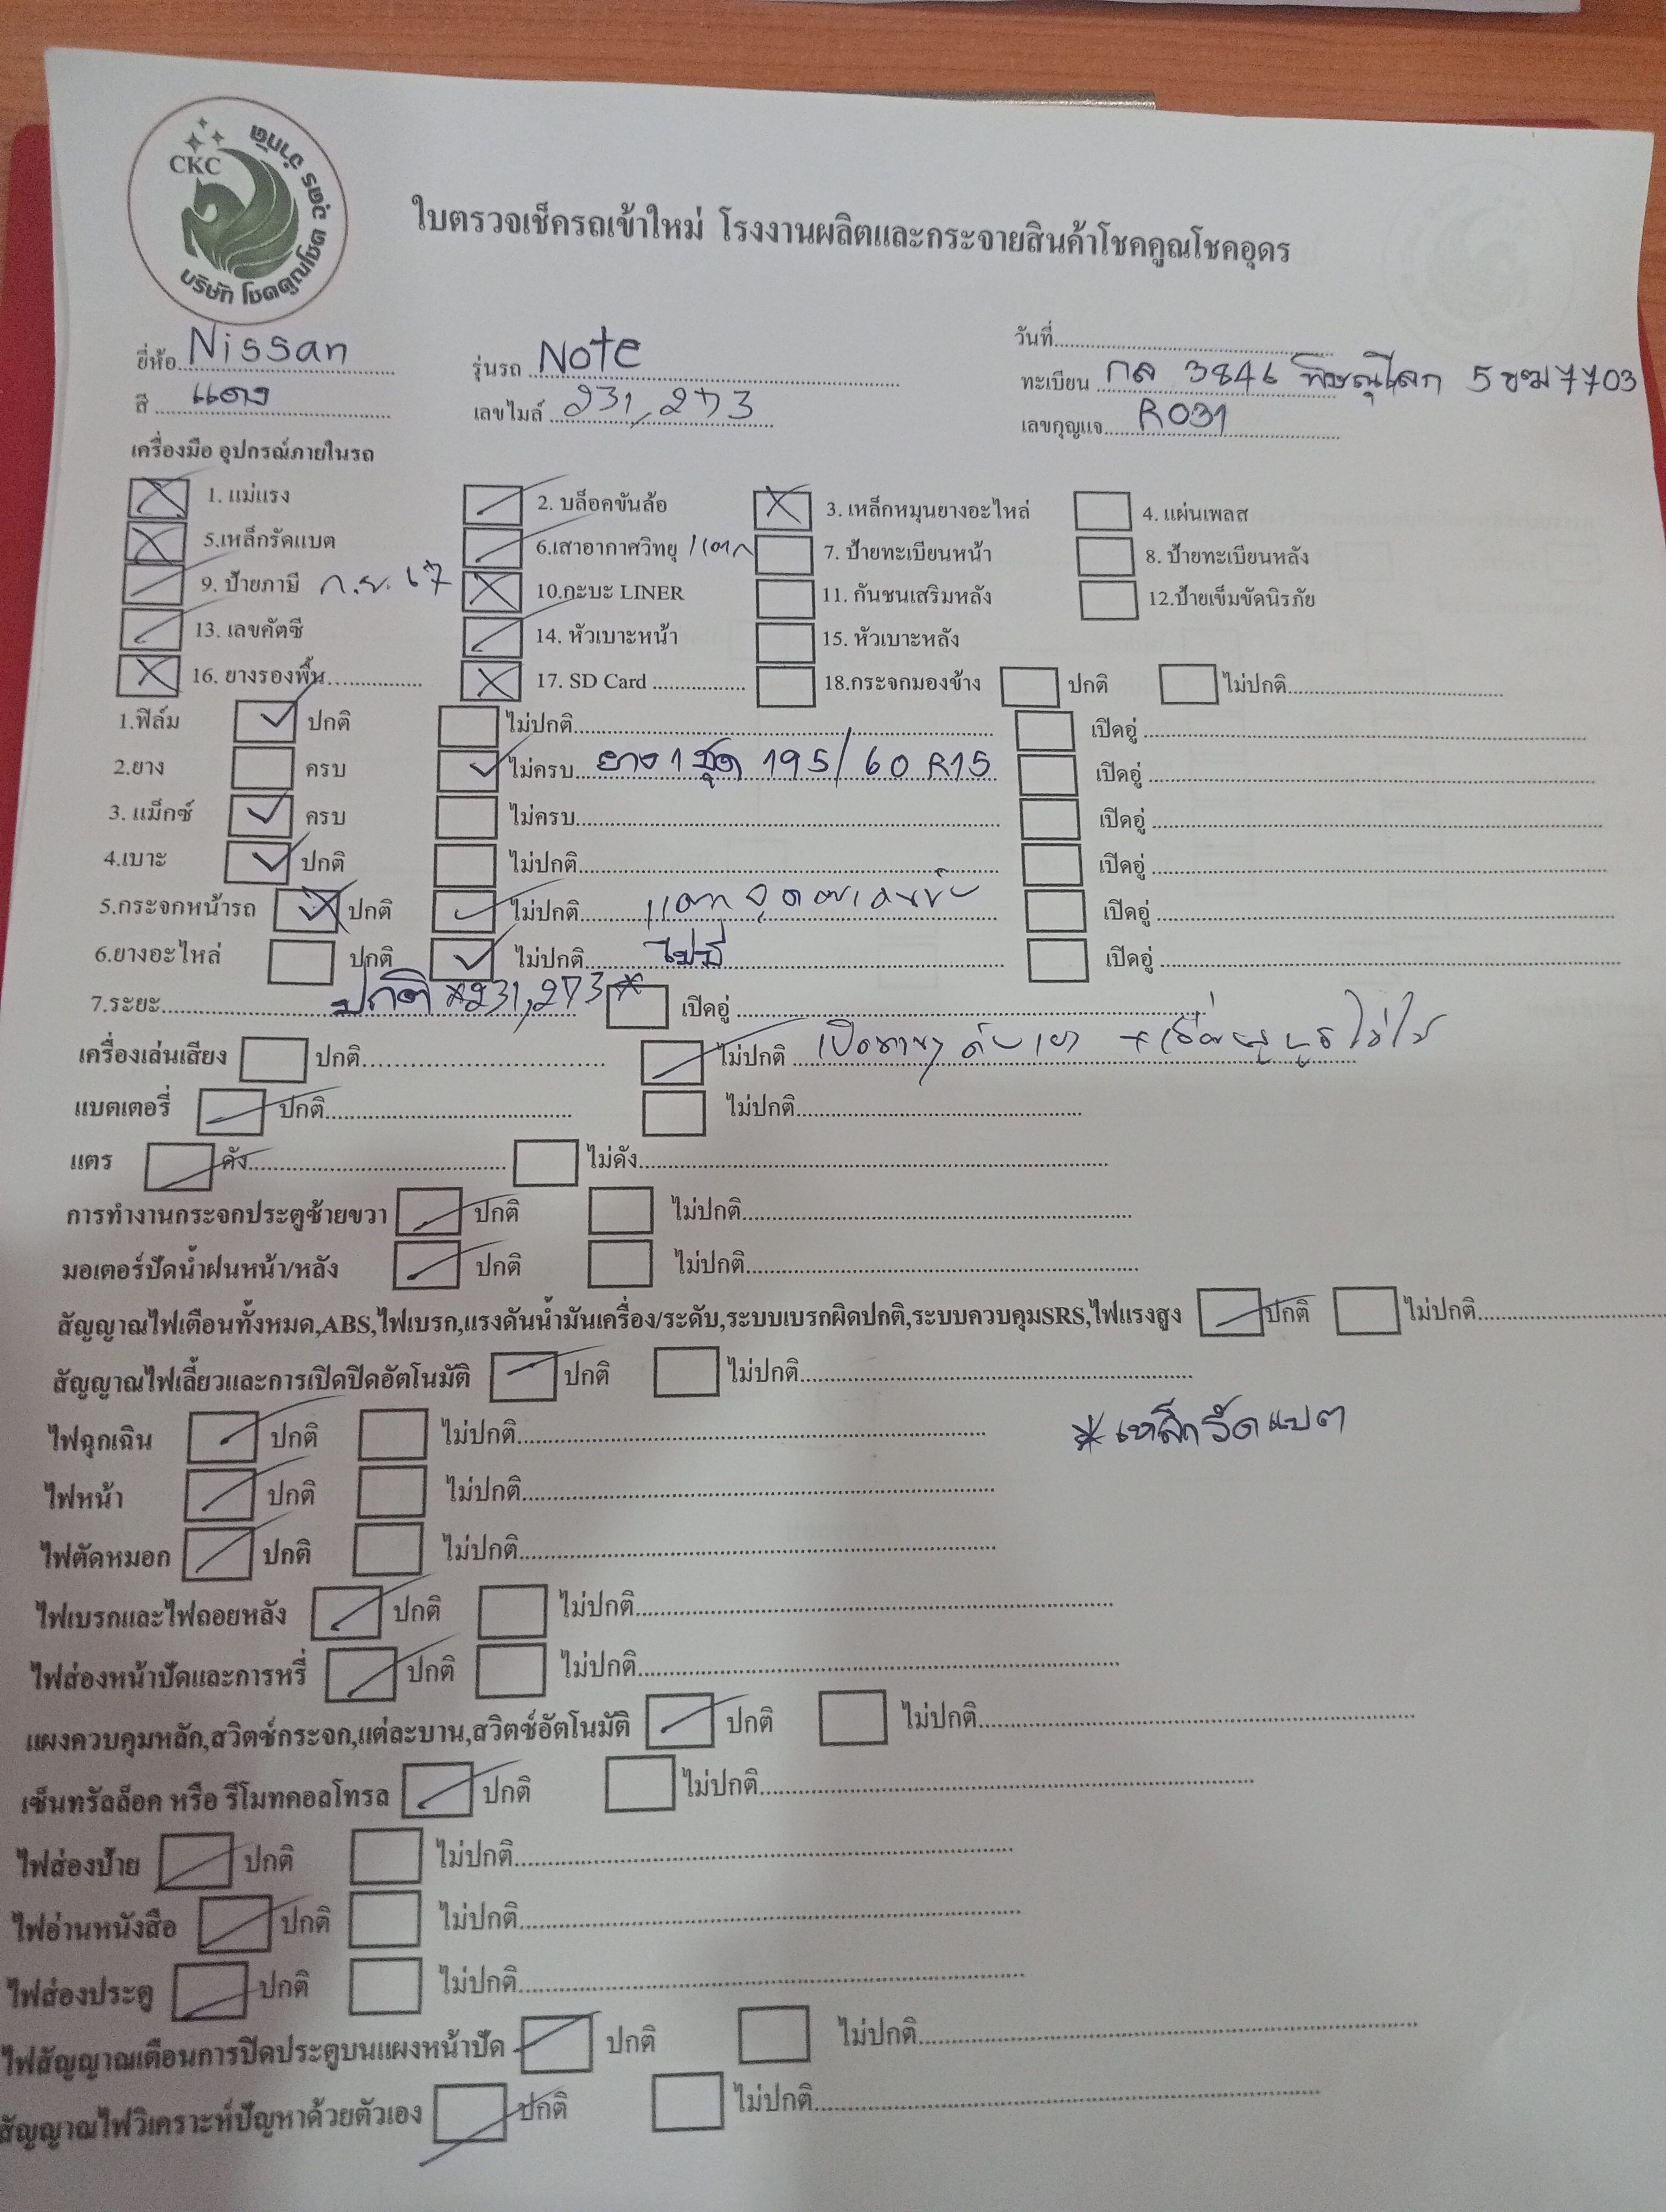 CKC
บริษัท โชคคูณโชค อุดร จำกัด
ใบตรวจเช็ครถเข้าใหม่ โรงงานผลิตและกระจายสินค้าโชคคูณโชคอุดร
ยี่ห้อ Nissan รุ่นรถ Note วันที่
สี แดง เลขไมล์ 231,273 ทะเบียน กล 3846 พิษณุโลก 5ขฒ7703
เลขกุญแจ R031
เครื่องมือ อุปกรณ์ภายในรถ
1. แม่แรง 2. บล็อคขันล้อ 3. เหล็กหมุนยางอะไหล่ 4. แผ่นเพลส
5.เหล็กรัดแบต 6.เสาอากาศวิทยุ แตก 7. ป้ายทะเบียนหน้า 8. ป้ายทะเบียนหลัง
9. ป้ายภาษี ก.ย. 67 10.กะบะ LINER 11. กันชนเสริมหลัง 12.ป้ายเข็มขัดนิรภัย
13. เลขคัตซี 14. หัวเบาะหน้า 15. หัวเบาะหลัง
16. ยางรองพื้น 17. SD Card 18.กระจกมองข้าง ปกติ ไม่ปกติ
1.ฟิล์ม ปกติ ไม่ปกติ เปิดอู่
2.ยาง ครบ ไม่ครบ ยาง 1 ชุด 195/60 R15 เปิดอู่
3. แม็กซ์ ครบ ไม่ครบ เปิดอู่
4.เบาะ ปกติ ไม่ปกติ เปิดอู่
5.กระจกหน้ารถ ปกติ ไม่ปกติ แตก เปิดอู่
6.ยางอะไหล่ ปกติ ไม่ปกติ ไม่มี เปิดอู่
7.ระยะ ปกติ *231,273* เปิดอู่
เครื่องเล่นเสียง ปกติ ไม่ปกติ ไม่ได้
แบตเตอรี่ ปกติ ไม่ปกติ
แตร ดัง ไม่ดัง
การทำงานกระจกประตูซ้ายขวา ปกติ ไม่ปกติ
มอเตอร์ปัดน้ำฝนหน้า/หลัง ปกติ ไม่ปกติ
สัญญาณไฟเตือนทั้งหมด,ABS,ไฟเบรก,แรงดันน้ำมันเครื่อง/ระดับ,ระบบเบรกผิดปกติ,ระบบควบคุมSRS,ไฟแรงสูง ปกติ ไม่ปกติ
สัญญาณไฟเลี้ยวและการเปิดปิดอัตโนมัติ ปกติ ไม่ปกติ
ไฟฉุกเฉิน ปกติ ไม่ปกติ *เหล็กรัดแบต
ไฟหน้า ปกติ ไม่ปกติ
ไฟตัดหมอก ปกติ ไม่ปกติ
ไฟเบรกและไฟถอยหลัง ปกติ ไม่ปกติ
ไฟส่องหน้าปัดและการหรี่ ปกติ ไม่ปกติ
แผงควบคุมหลัก,สวิตซ์กระจก,แต่ละบาน,สวิตซ์อัตโนมัติ ปกติ ไม่ปกติ
เซ็นทรัลล็อค หรือ รีโมทคอลโทรล ปกติ ไม่ปกติ
ไฟส่องป้าย ปกติ ไม่ปกติ
ไฟอ่านหนังสือ ปกติ ไม่ปกติ
ไฟส่องประตู ปกติ ไม่ปกติ
ไฟสัญญาณเตือนการปิดประตูบนแผงหน้าปัด ปกติ ไม่ปกติ
สัญญาณไฟวิเคราะห์ปัญหาด้วยตัวเอง ปกติ ไม่ปกติ